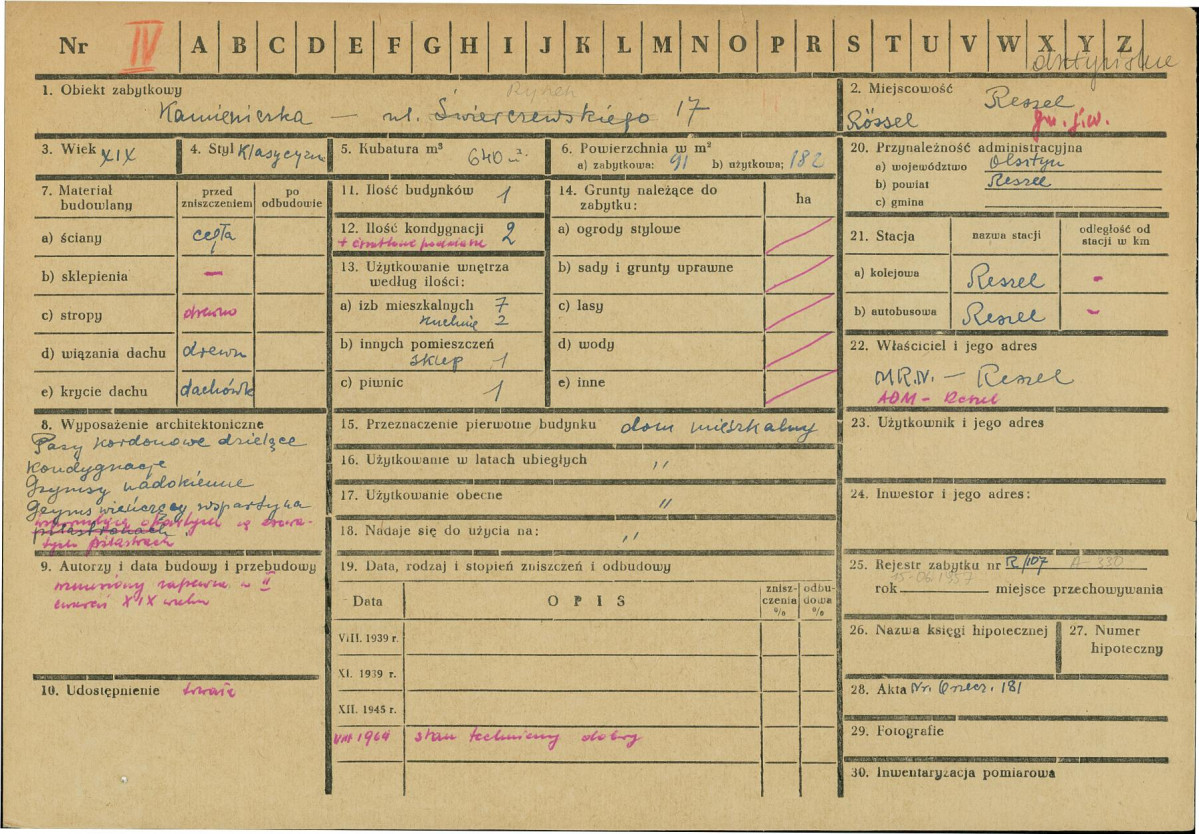 Nr IV A B C D E F G H I J K L M N O P R S T U V W X Y Z
1. Obiekt zabytkowy
Rynek
Kamieniczka – ul. Świerczewskiego 17
2. Miejscowość
Reszel
Rössel
3. Wiek XIX
4. Styl Klasyczn
5. Kubatura m³ 640 m³
6. Powierzchnia w m²
a) zabytkowa: 91 b) użytkowa: 182
20. Przynależność administracyjna
a) województwo Olsztyn
b) powiat Reszel
c) gmina
7. Materiał budowlany
przed zniszczeniem
po odbudowie
a) ściany cegła
b) sklepienia –
c) stropy drewno
d) wiązania dachu drewn
e) krycie dachu dachówk
11. Ilość budynków 1
12. Ilość kondygnacji 2
+ poddasze
13. Użytkowanie wnętrza
według ilości:
a) izb mieszkalnych 7
kuchnie 2
b) innych pomieszczeń
sklep 1
c) piwnic 1
14. Grunty należące do
zabytku:
ha
a) ogrody stylowe
b) sady i grunty uprawne
c) lasy
d) wody
e) inne
21. Stacja
nazwa stacji
odległość od
stacji w km
a) kolejowa Reszel –
b) autobusowa Reszel –
22. Właściciel i jego adres
M.R.N. – Reszel
ADM – Reszel
8. Wyposażenie architektoniczne
Pasy kordonowe dzielące
kondygnacje
Gzymsy nadokienne
Gzyms wieńczący wsparty na
pilastrach
9. Autorzy i data budowy i przebudowy
wzniesiony zapewne w II
XIX wieku
10. Udostępnienie
15. Przeznaczenie pierwotne budynku dom mieszkalny
16. Użytkowanie w latach ubiegłych „
17. Użytkowanie obecne „
18. Nadaje się do użycia na: „
19. Data, rodzaj i stopień zniszczeń i odbudowy
Data
OPIS
znisz-
czenia
%
odbu-
dowa
%
VIII. 1939 r.
XI. 1939 r.
XII. 1945 r.
VIII 1964 stan techniczny dobry
23. Użytkownik i jego adres
24. Inwestor i jego adres:
25. Rejestr zabytku nr R/107 A-330
15.06.1957
rok miejsce przechowywania
26. Nazwa księgi hipotecznej
27. Numer
hipoteczny
28. Akta Nr. 181
29. Fotografie
30. Inwentaryzacja pomiarowa